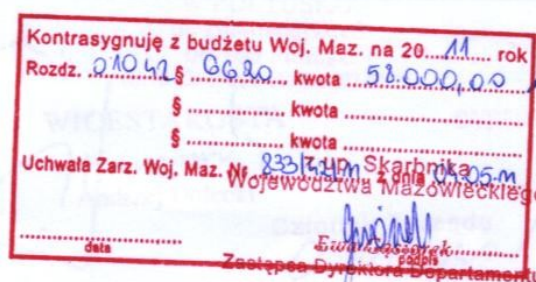 Kontrasygnuję z budżetu Woj. Maz. na 20 11 rok
Rozdz. 01042 § 6620 kwota 58.000,00
§ ........ kwota ........
§ ........ kwota ........
Uchwała Zarz. Woj. Maz. Nr 833/ z dnia
z up. Skarbnika
Województwa Mazowieckiego
data
podpis
Zastępca Dyrektora Departamentu